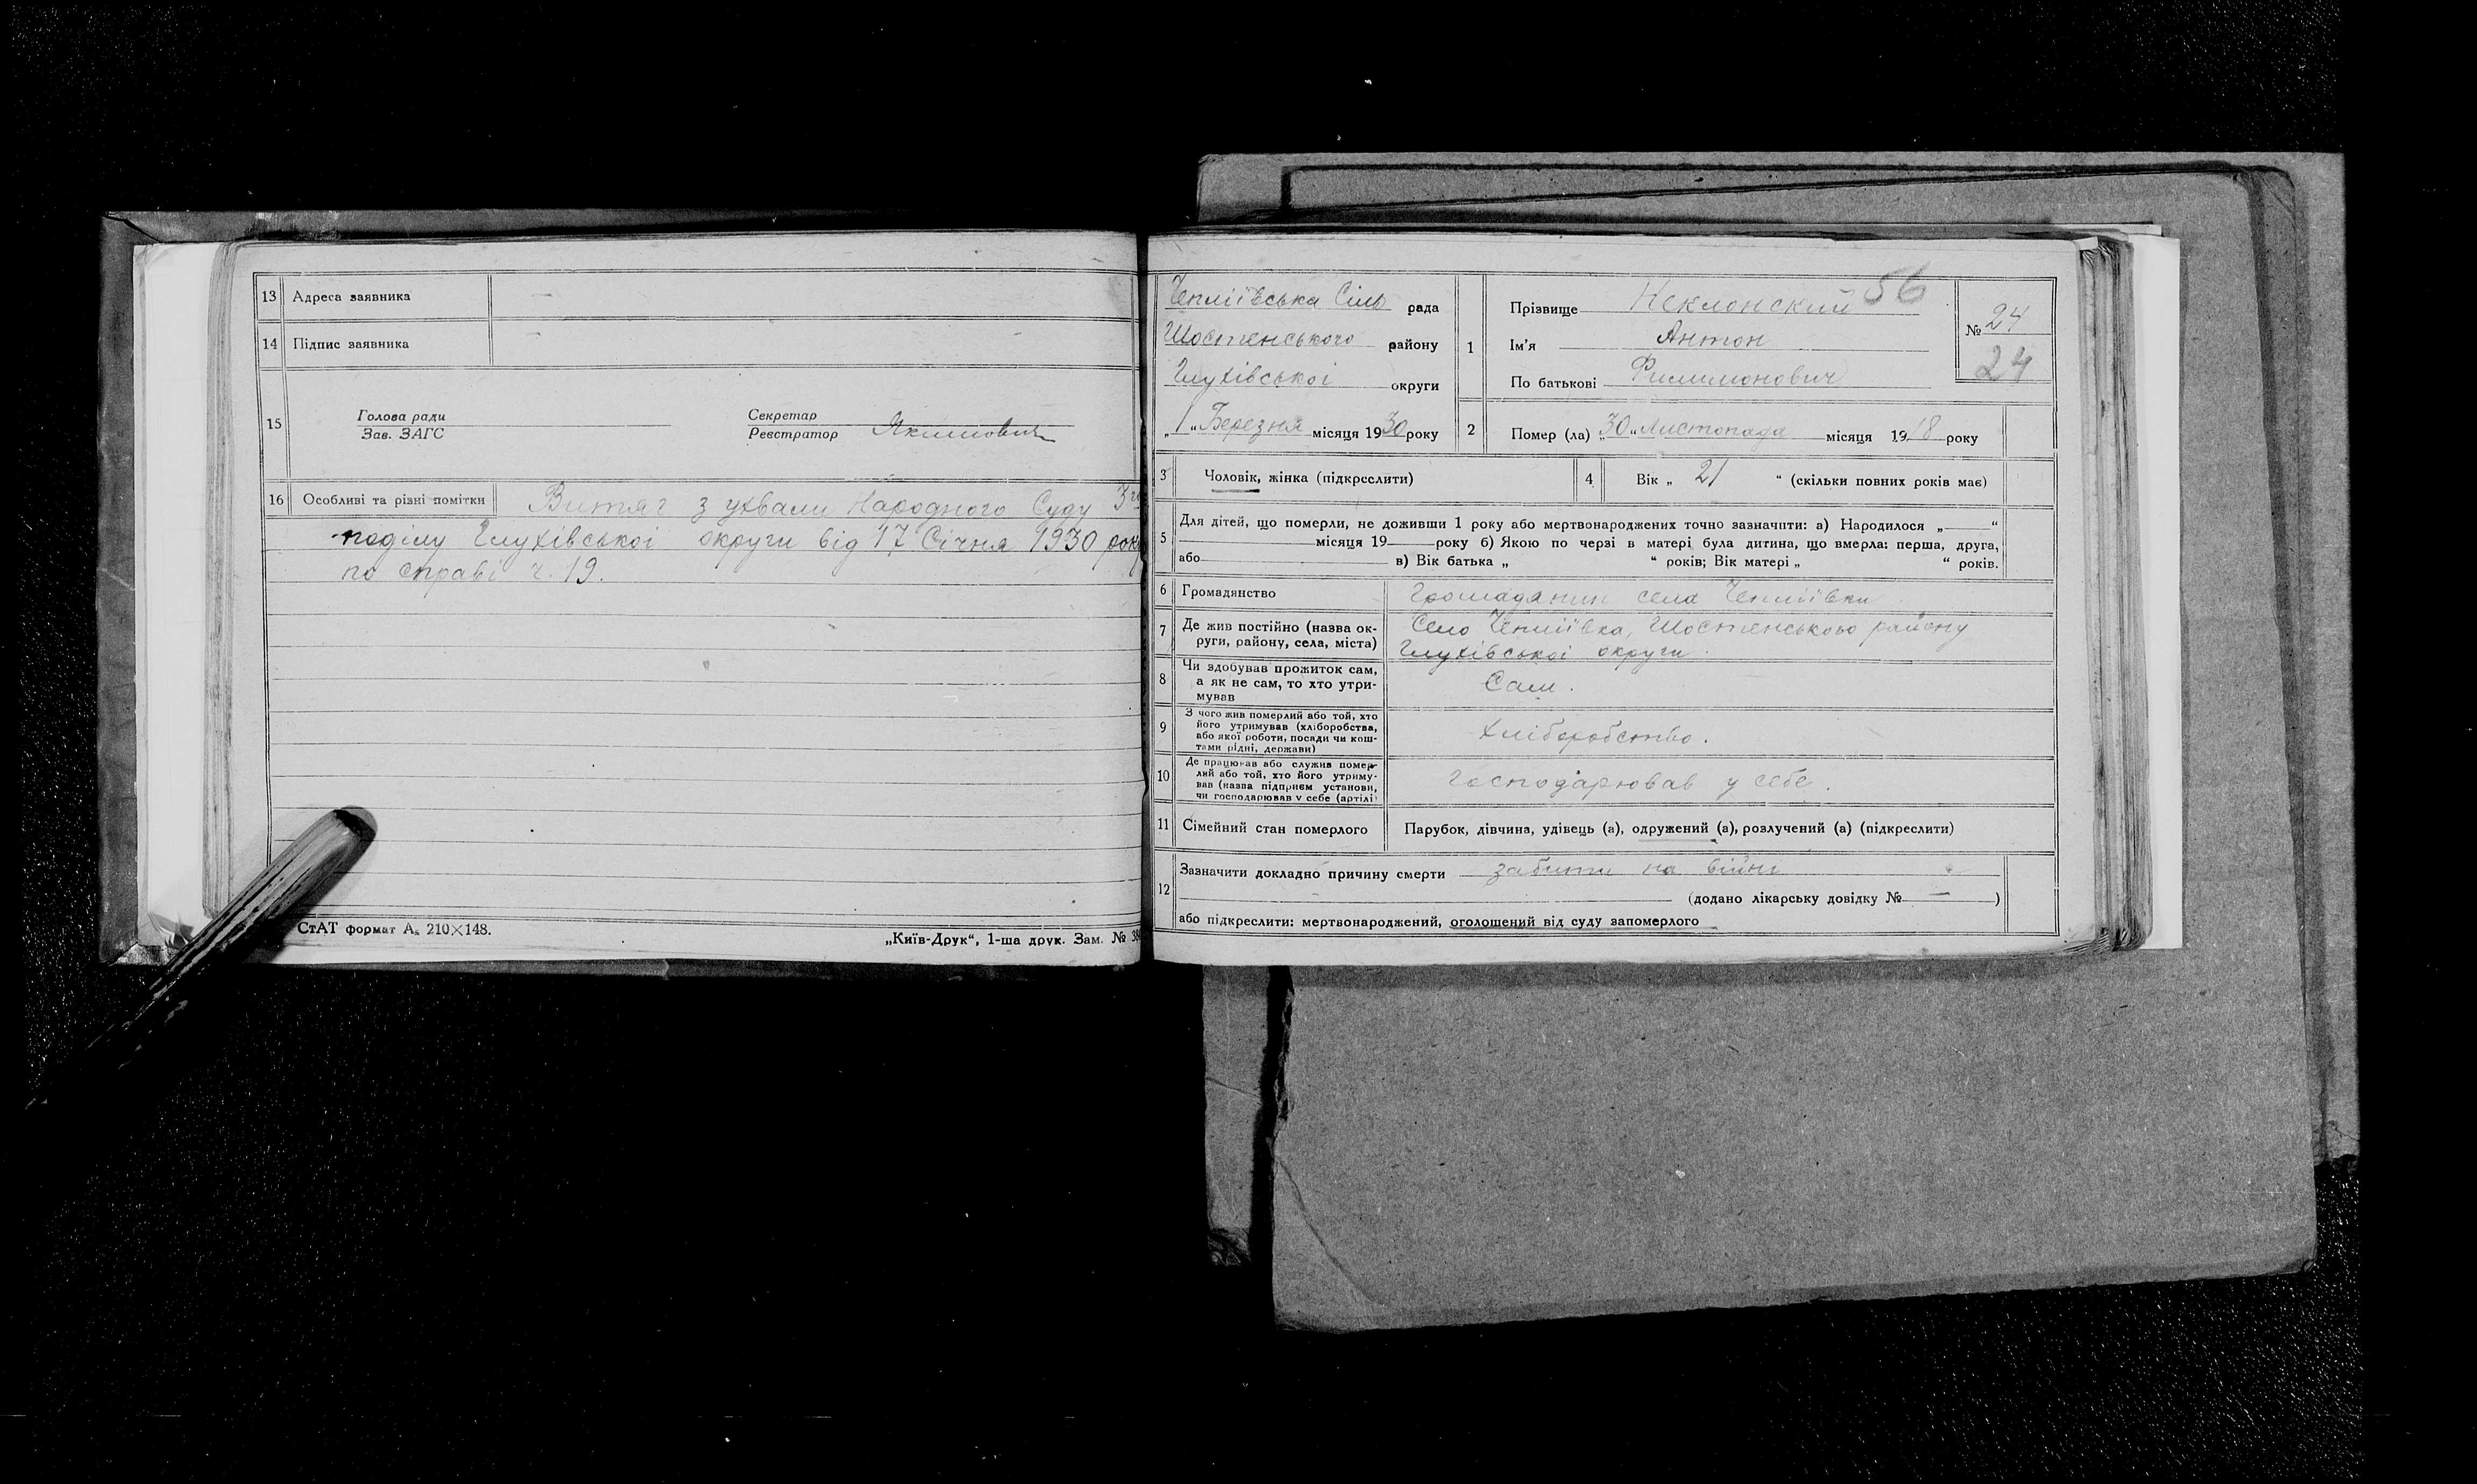 13 Адреса заявника —
14 Підпис заявника — —
15 Голова ради
Зав. ЗАГС
Секретар
Реєстратор Якимович
16 Особливі та різні помітки Витяг з ухвали Народного Суду 3го
поділу Глухівської округи від 17 Січня 1930 року
по справі ч. 19.
СтАТ формат А₅ 210×148.
„Київ-Друк“, 1-ша друк. Зам. №
Чепліївська Сіль рада
Шостенського району
Глухівської округи
„1“ Березня місяця 1930 року
56
1 Прізвище Неклонский
Ім'я Антон
По батькові Филимонович
№ 24
24
2 Помер (ла) „30“ Листопада місяця 1918 року
3 Чоловік, жінка (підкреслити)
4 Вік „ 21 “ (скільки повних років має)
5 Для дітей, що померли, не доживши 1 року або мертвонароджених точно зазначити: а) Народилося „ “
місяця 19 року б) Якою по черзі в матері була дитина, що вмерла: перша, друга,
або в) Вік батька „ “ років; Вік матері „ “ років.
6 Громадянство Громадянин села Чепліївки
7 Де жив постійно (назва ок-
руги, району, села, міста) Село Чепліївка, Шостенського району
Глухівської округи.
8 Чи здобував прожиток сам,
а як не сам, то хто утри-
мував Сам.
9 З чого жив померлий або той, хто
його утримував (хліборобства,
або якої роботи, посади чи кош-
тами рідні, держави) Хліборобство.
10 Де працював або служив помер-
лий або той, хто його утриму-
вав (назва підприєм установи,
чи господарював у себе (артілі) Господарював у себе.
11 Сімейний стан померлого Парубок, дівчина, удівець (а), одружений (а), розлучений (а) (підкреслити)
12 Зазначити докладно причину смерти забити на війні
— (додано лікарську довідку № — )
або підкреслити: мертвонароджений, оголошений від суду запомерлого